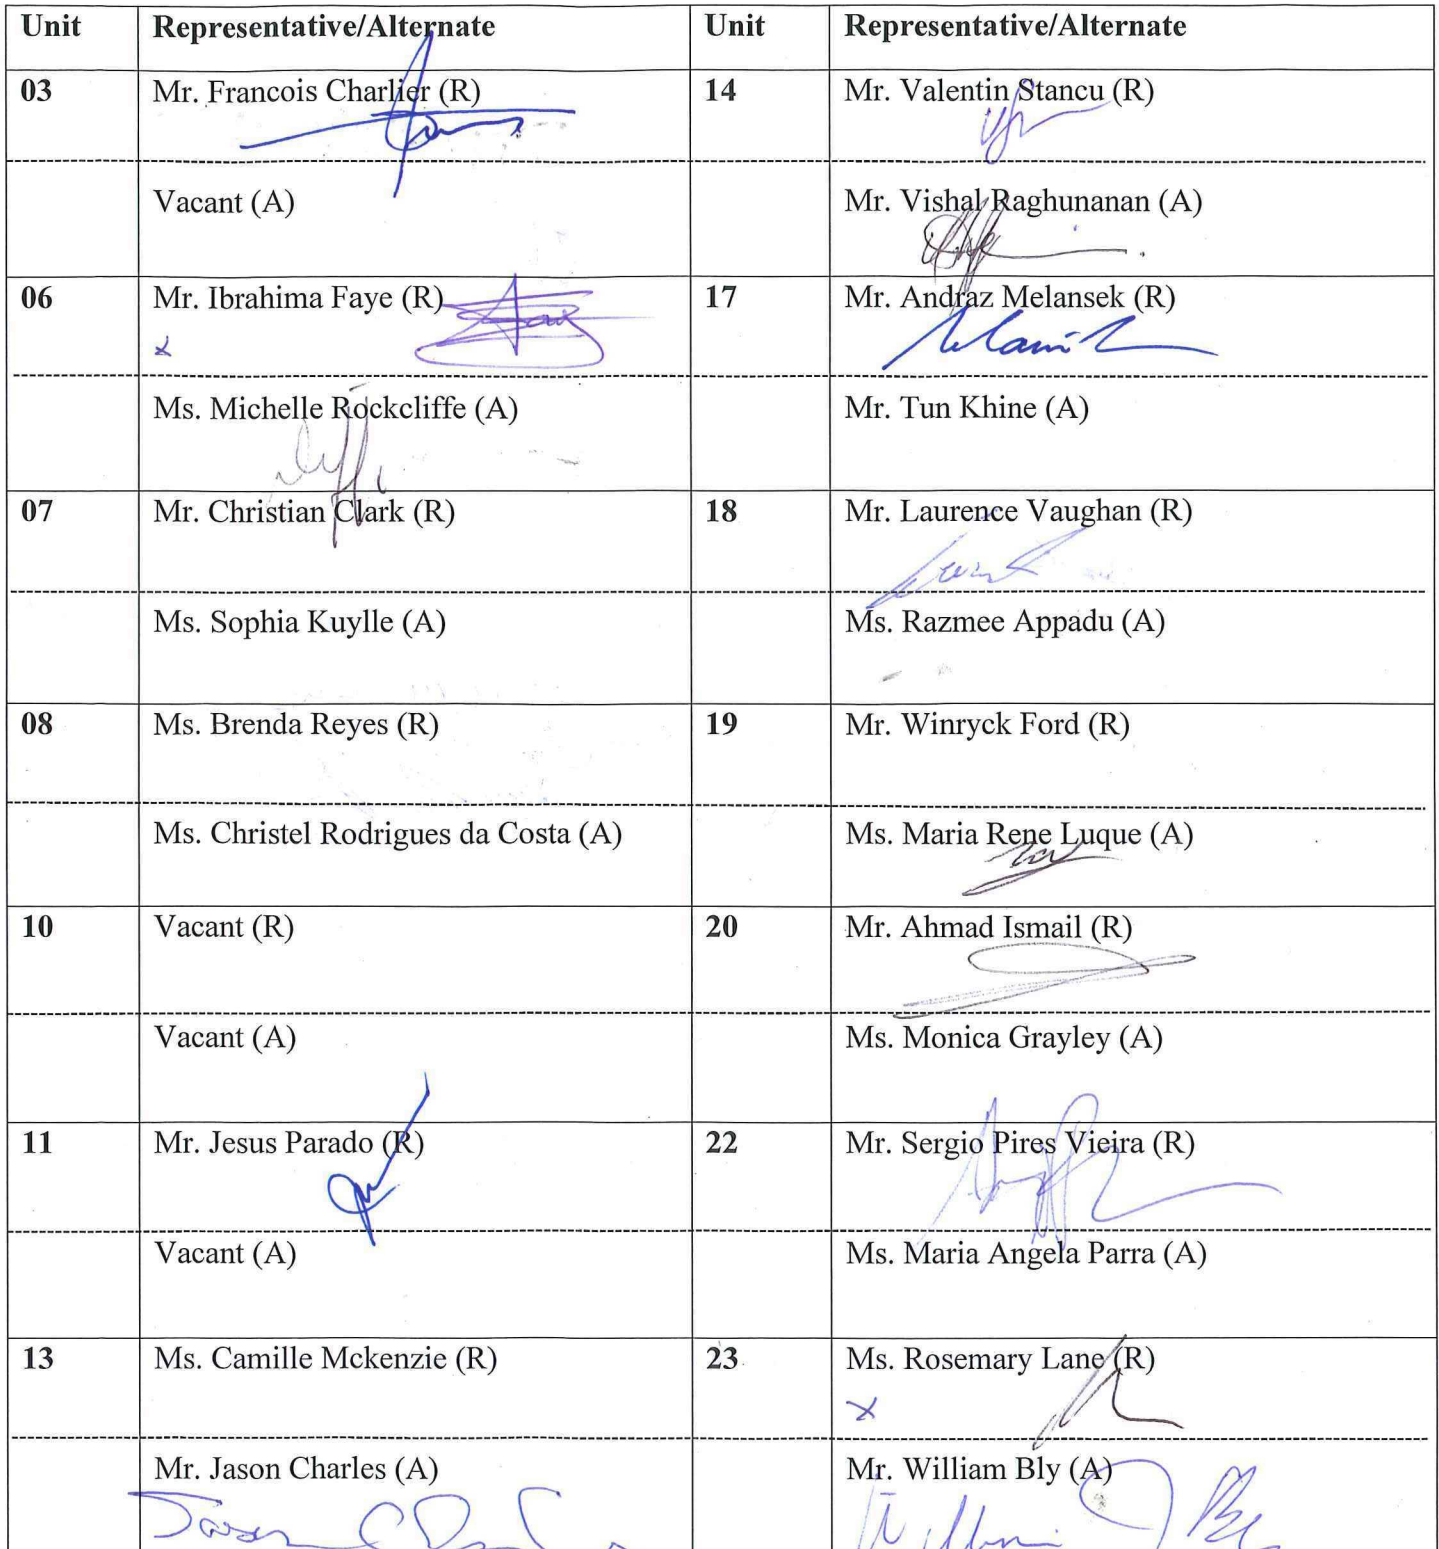 Unit Representative/Alternate Unit Representative/Alternate
03 Mr. Francois Charlier (R) 14 Mr. Valentin Stancu (R)
Vacant (A) Mr. Vishal Raghunanan (A)
06 Mr. Ibrahima Faye (R) 17 Mr. Andraz Melansek (R)
x
Ms. Michelle Rockcliffe (A) Mr. Tun Khine (A)
07 Mr. Christian Clark (R) 18 Mr. Laurence Vaughan (R)
Ms. Sophia Kuylle (A) Ms. Razmee Appadu (A)
08 Ms. Brenda Reyes (R) 19 Mr. Winryck Ford (R)
Ms. Christel Rodrigues da Costa (A) Ms. Maria Rene Luque (A)
10 Vacant (R) 20 Mr. Ahmad Ismail (R)
Vacant (A) Ms. Monica Grayley (A)
11 Mr. Jesus Parado (R) 22 Mr. Sergio Pires Vieira (R)
Vacant (A) Ms. Maria Angela Parra (A)
13 Ms. Camille Mckenzie (R) 23 Ms. Rosemary Lane (R)
x
Mr. Jason Charles (A) Mr. William Bly (A)